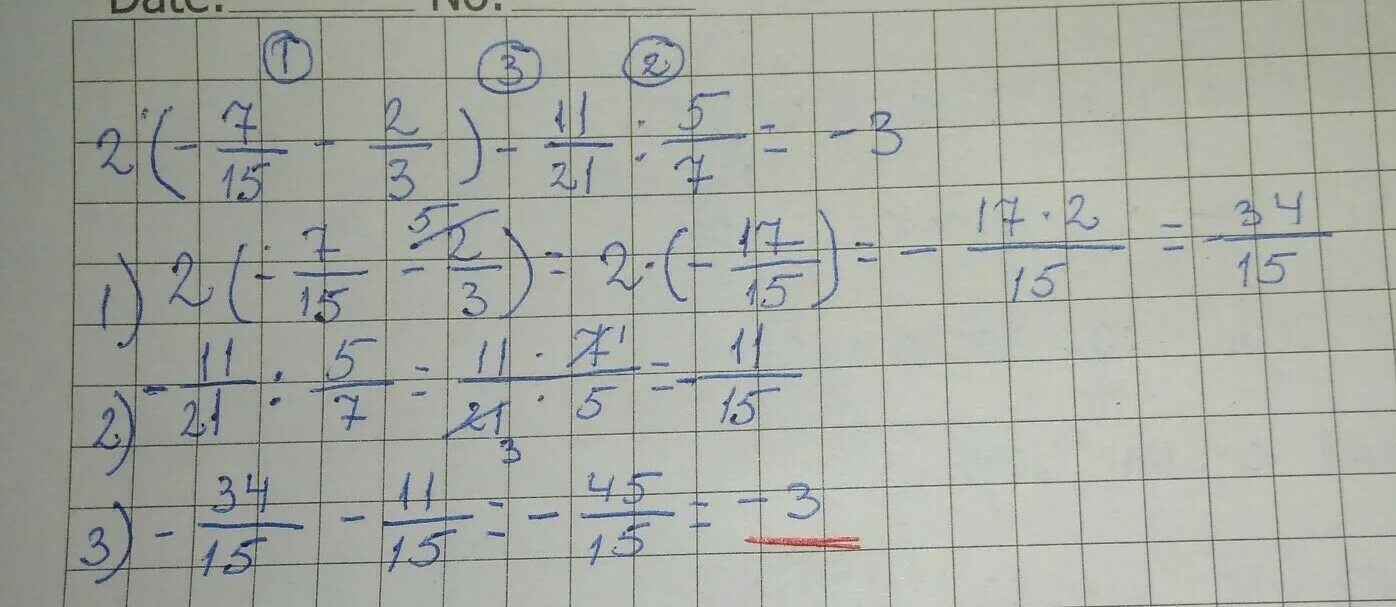 Date: No.
① ③ ②
2·(-7/15 - 2/3) - 11/21 : 5/7 = -3
1) 2(-7/15 - 2/3 5) = 2·(-17/15) = - 17·2/15 = 34/15
2) -11/21 : 5/7 = 11·7 1/21 3·5 = -11/15
3) -34/15 - 11/15 = -45/15 = -3